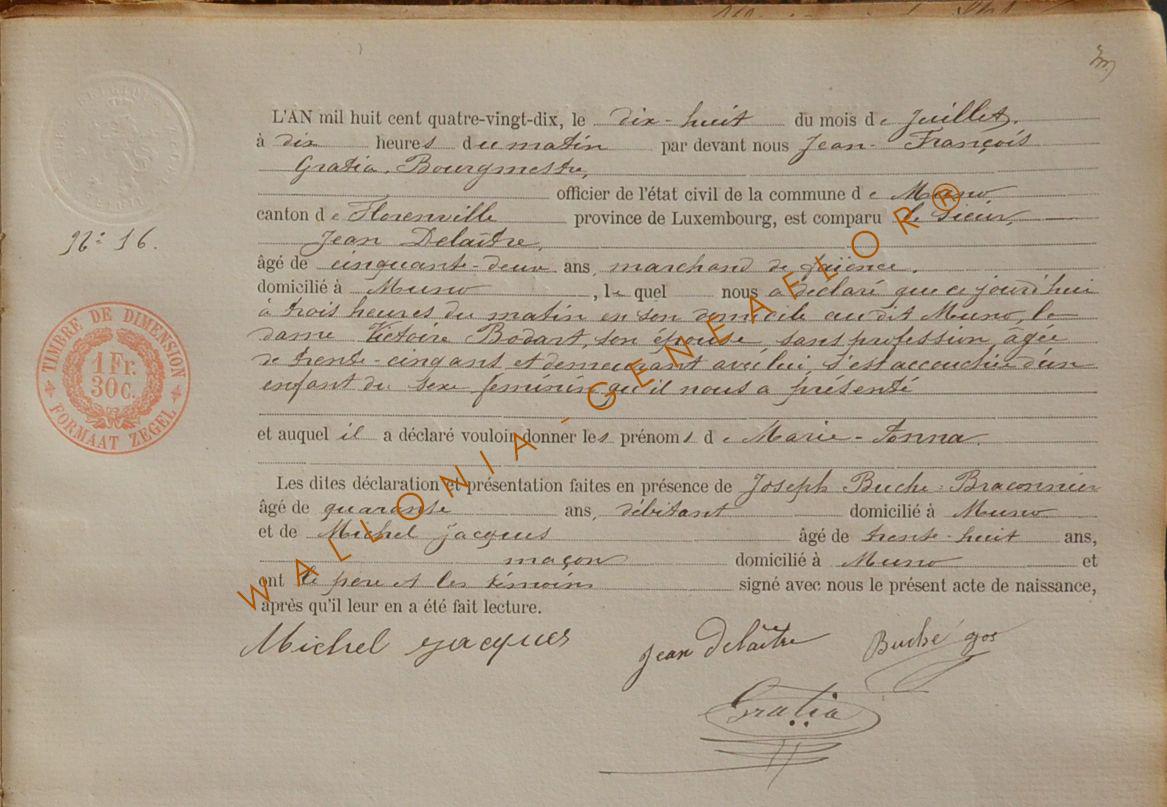 L'AN mil huit cent quatre-vingt-dix, le dix-huit du mois de Juillet.
à dix heures du matin par devant nous Jean-François
Gratia, Bourgmestre,
officier de l'état civil de la commune de Muno
canton de Florenville province de Luxembourg, est comparu le sieur,
Jean Delaître,
âgé de cinquante-deux ans, marchand de faïence,
domicilié à Muno, le quel nous a déclaré que ce jourd'hui
à trois heures du matin en son domicile audit Muno, la
dame Victoire Bodart, son épouse, sans profession, âgée
de trente-cinq ans, et demeurant avec lui, s'est accouchée d'un
enfant du sexe feminin qu'il nous a présenté
et auquel il a déclaré vouloir donner les prénoms de Marie-Anna.
Les dites déclaration et présentation faites en présence de Joseph Buche-Braconnier
âgé de quarante ans, débitant domicilié à Muno
et de Michel Jacques âgé de trente-huit ans,
maçon domicilié à Muno et
ont le père et les témoins signé avec nous le présent acte de naissance,
après qu'il leur en a été fait lecture.
Michel Jacques Jean Delaître Buché Jos
Gratia
N° 16.
TIMBRE DE DIMENSION
1 Fr.
30 C.
FORMAAT ZEGEL
WALLONIA-GENEAELOR®